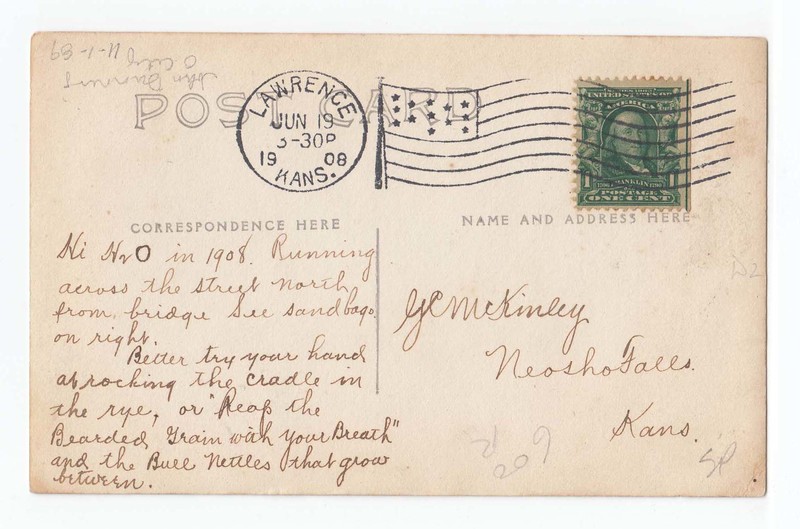 11-1-89
POST CARD
LAWRENCE
JUN 19
3-30P
19 08
KANS.
UNITED STATES OF
AMERICA
1 FRANKLIN 1
POSTAGE
ONE CENT
CORRESPONDENCE HERE
Hi H2O in 1908. Running
across the street north
from bridge See sandbags
on right.
Better try your hand
at rocking the cradle in
the rye, or "Reap the
Bearded Grain with your Breath"
and the Bull Nettles that grow
between.
NAME AND ADDRESS HERE
McKinley
Neosho Falls.
Kans.
D2